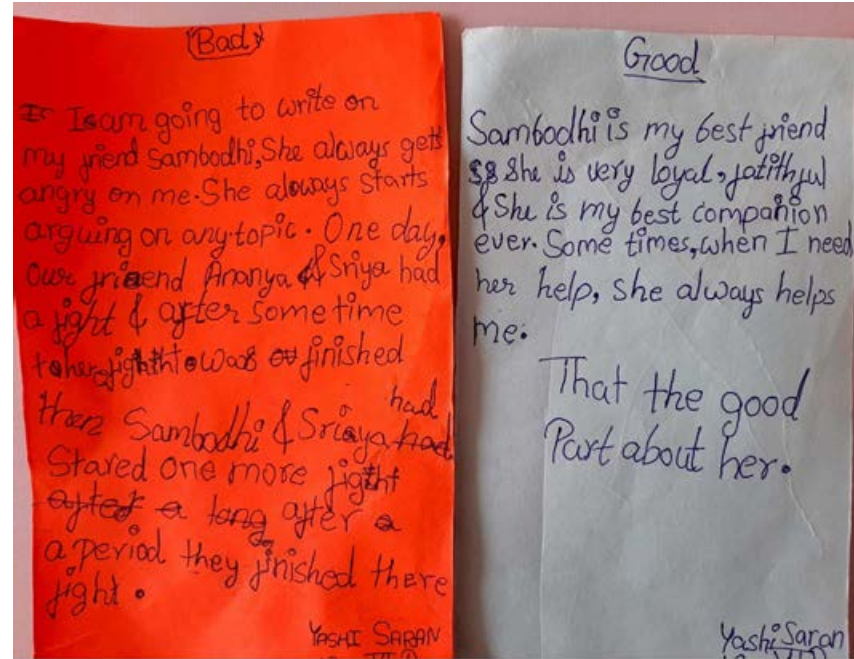 Bad
I am going to write on
my friend Sambodhi, She always gets
angry on me. She always starts
arguing on any topic. One day,
our friend Ananya & Sriya had
a fight & after some time
fight was finished
then Sambodhi & Sriya had
Stared one more fight
after a
a period they finished there
fight.
YASHI SARAN
Good
Sambodhi is my best friend
She is very loyal, fatithful
& She is my best companion
ever. Some times, when I need
her help, she always helps
me.
That the good
Part about her.
Yashi Saran